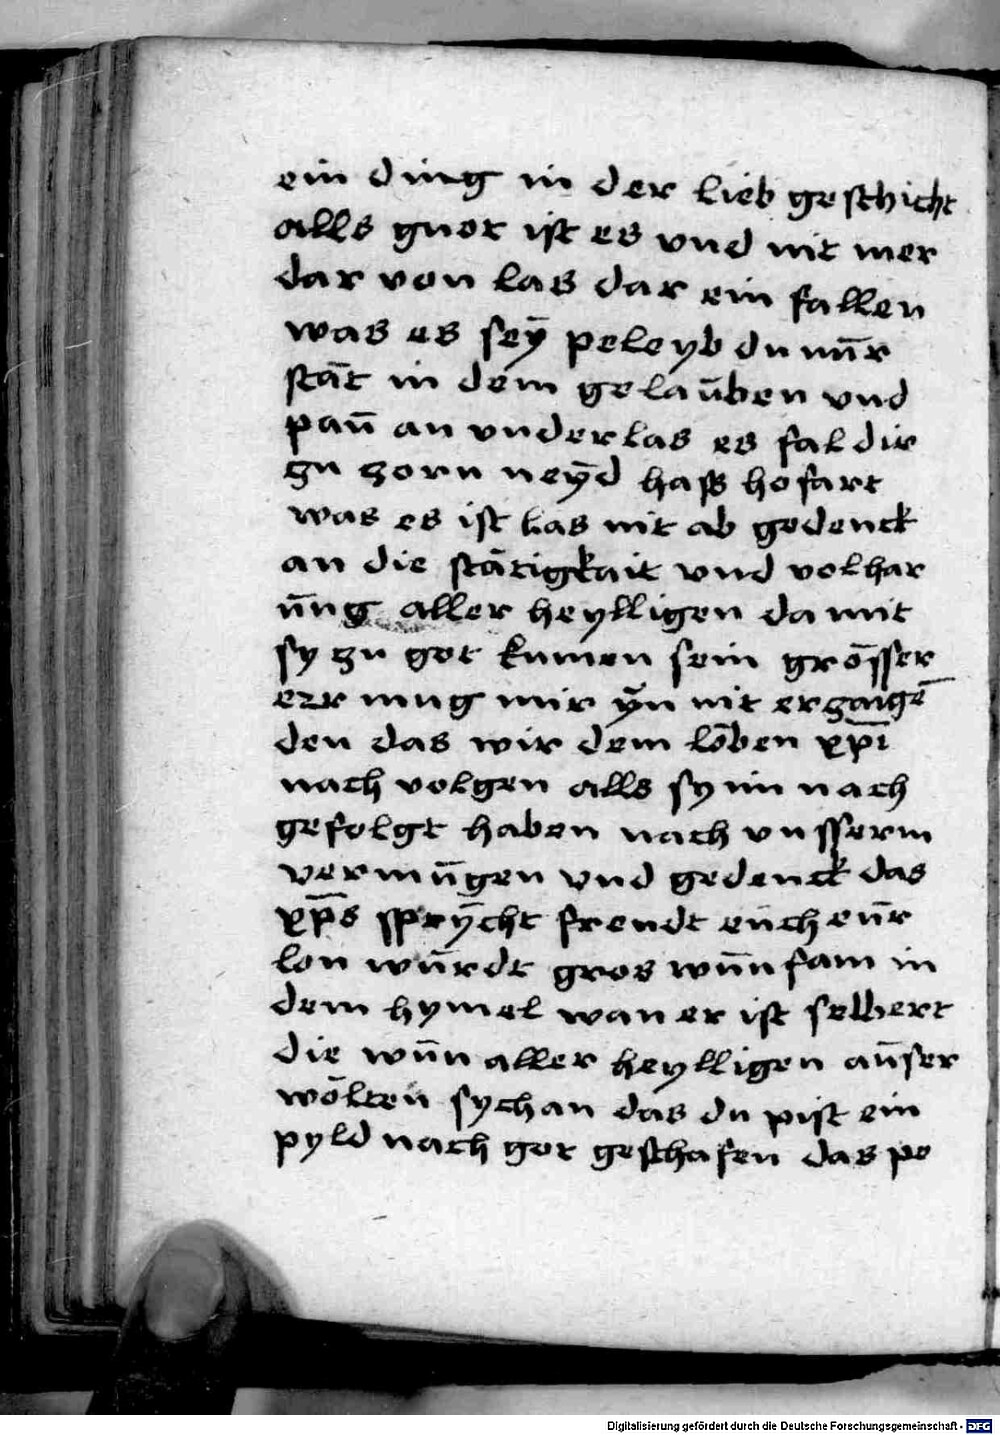 ein ding in der lieb geschicht
alls guot ist es vnd nit mer
dar von las dar ein fallen
was es seÿ peleyb du nūr
stāt in dem gelaūben vnd
paū an vnderlas es fal dir
zu zorn neÿd hass hofart
was es ist las nit ab gedenck
an die stātigkait vnd volhar
ūng aller heylligen da mit
sy zu got kumen sein grōsser
ezr mug mir ÿn nit erzaigē
den das wir dem lōben xp̄i
nach volgen alls sy im nach
gefolgt haben nach vnsserm
vermūgen vnd gedenck das
xp̄s sprÿcht frendt eūch eūr
lon wūrdt gros wūnsam in
dem hymel wan er ist selbert
die wūn aller heylligen aūser
wōlten sych an das du pist ein
pyld nach got geschafen das pe
Digitalisierung gefördert durch die Deutsche Forschungsgemeinschaft - DFG